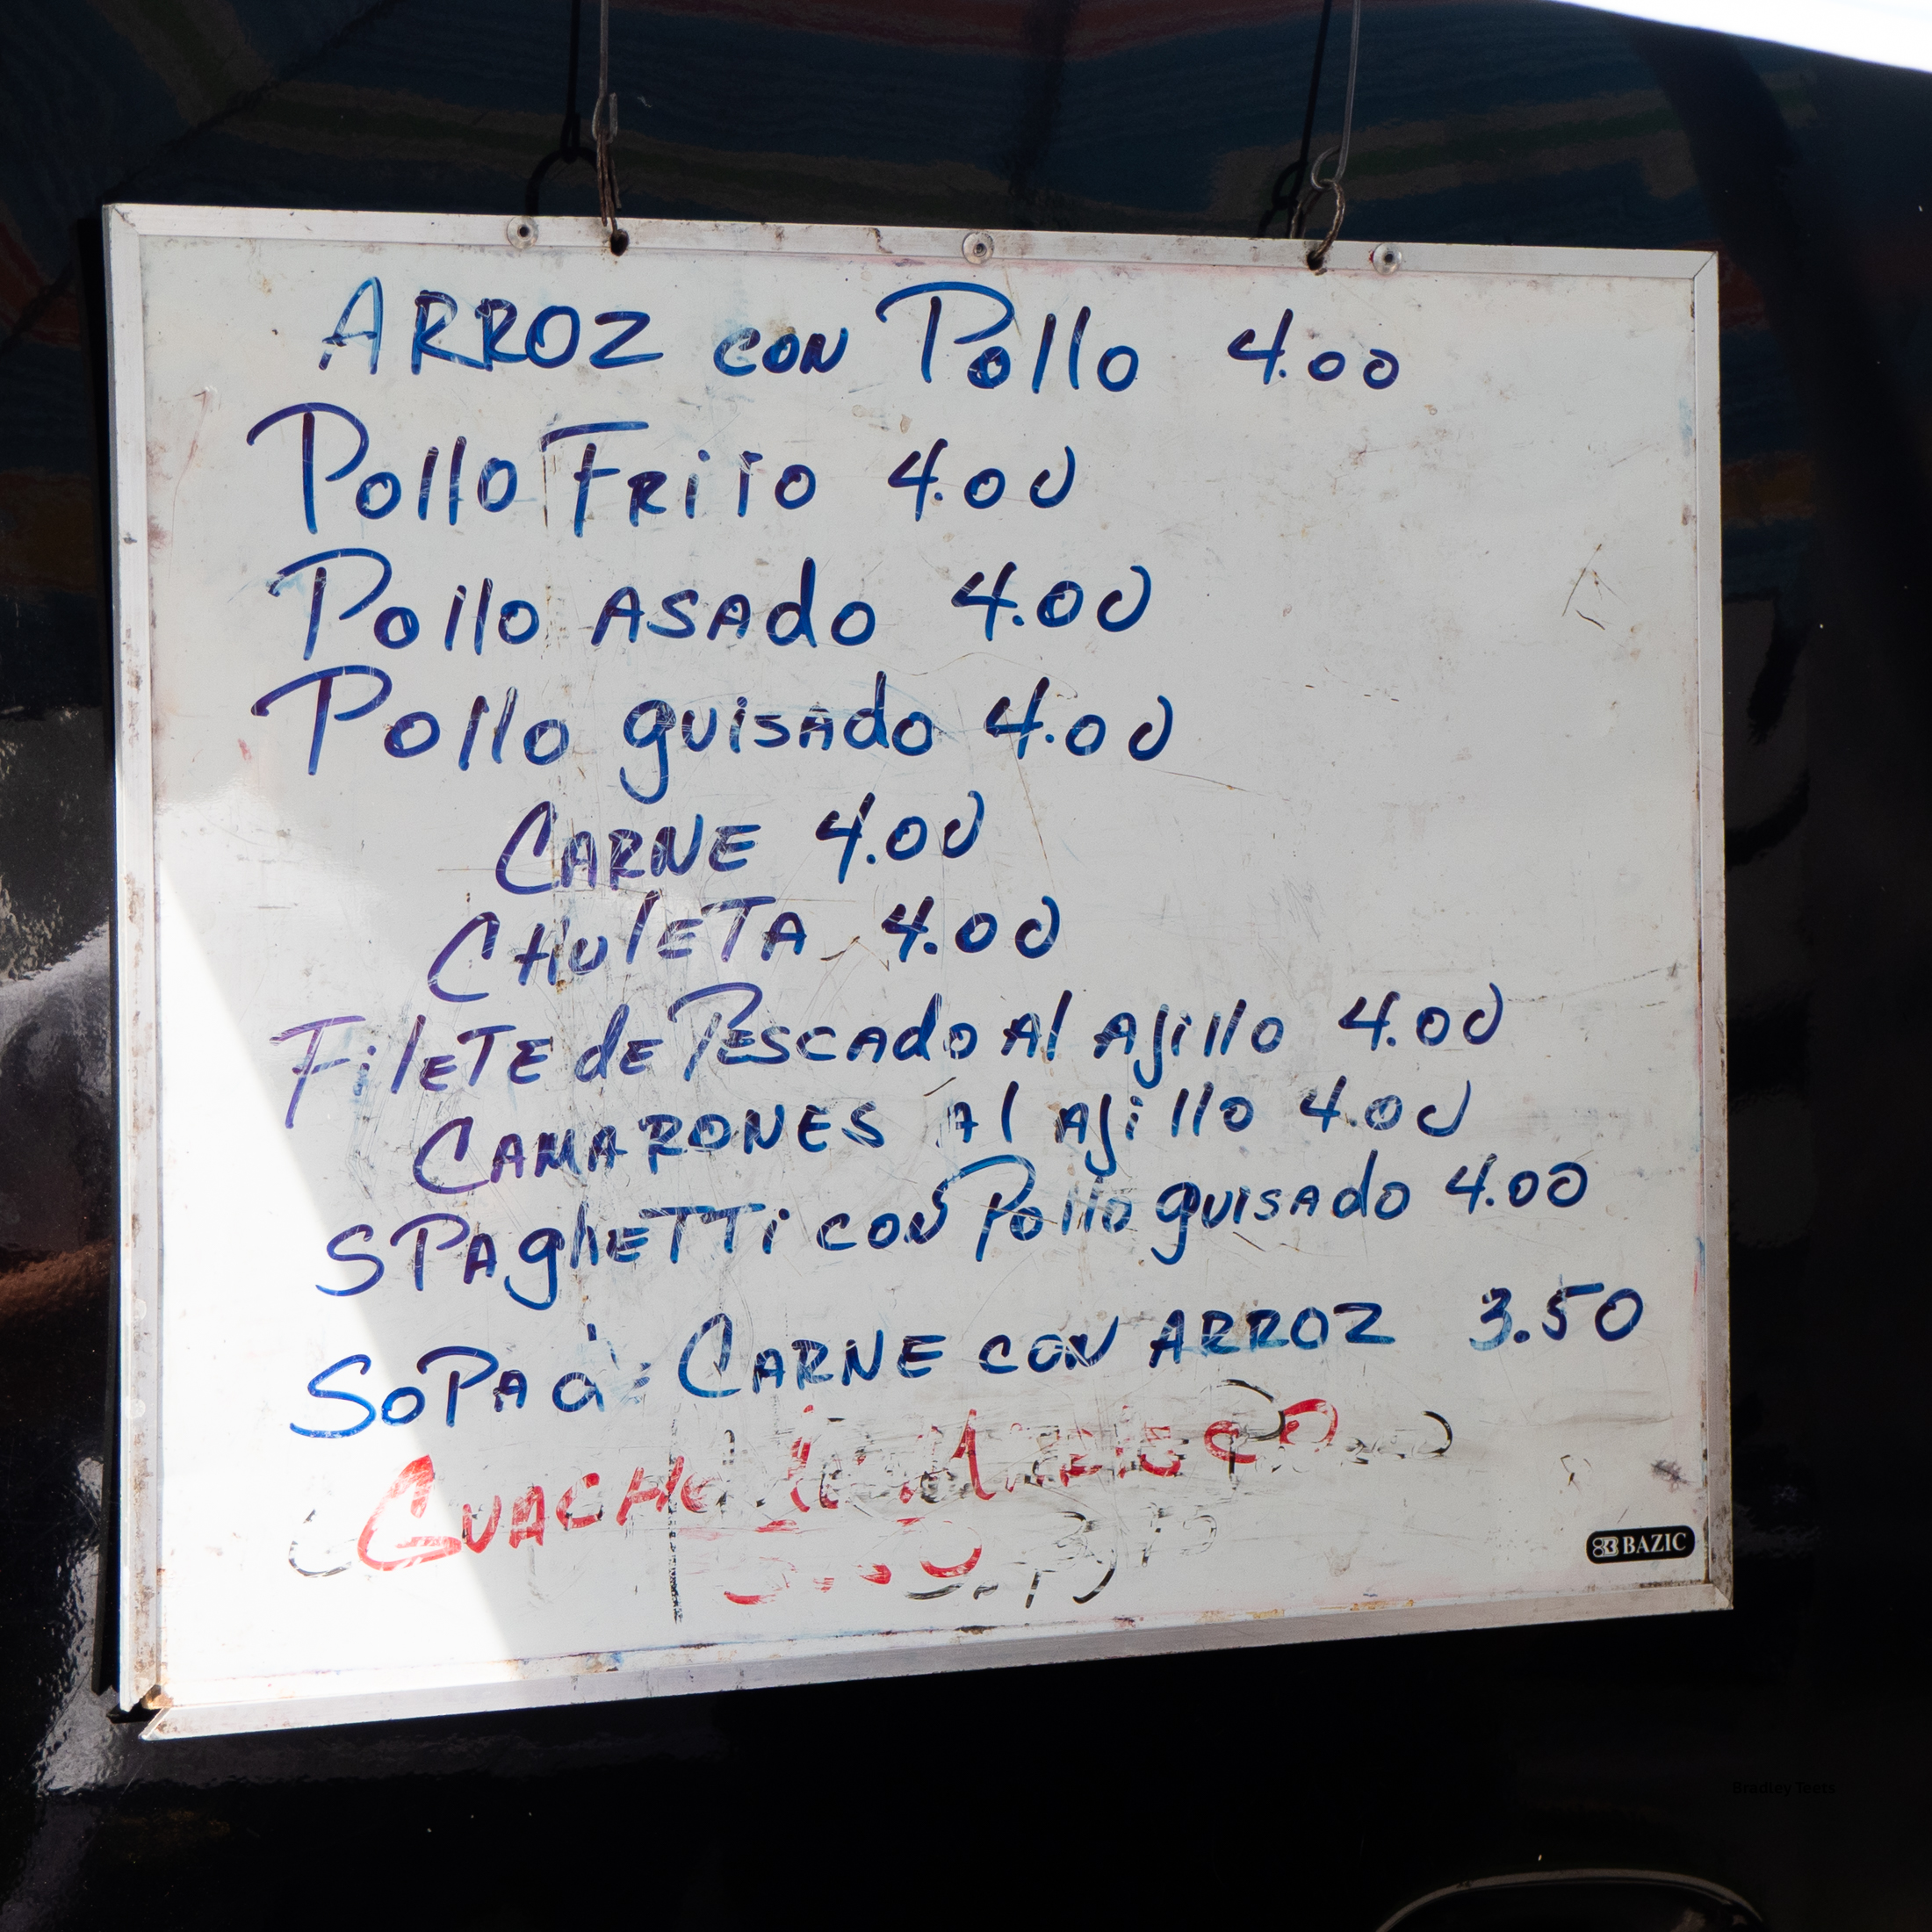 ARROZ CON Pollo 4.00
Pollo FRITO 4.00
Pollo ASADO 4.00
Pollo guisado 4.00
CARNE 4.00
CHULETA 4.00
FileTE de PESCADO Al Ajillo 4.00
CAMARONES Al Ajillo 4.00
SPAghETTi CON Pollo guisado 4.00
SOPA CARNE CON ARROZ 3.50
GUACHO
BAZIC
Bradley Teets